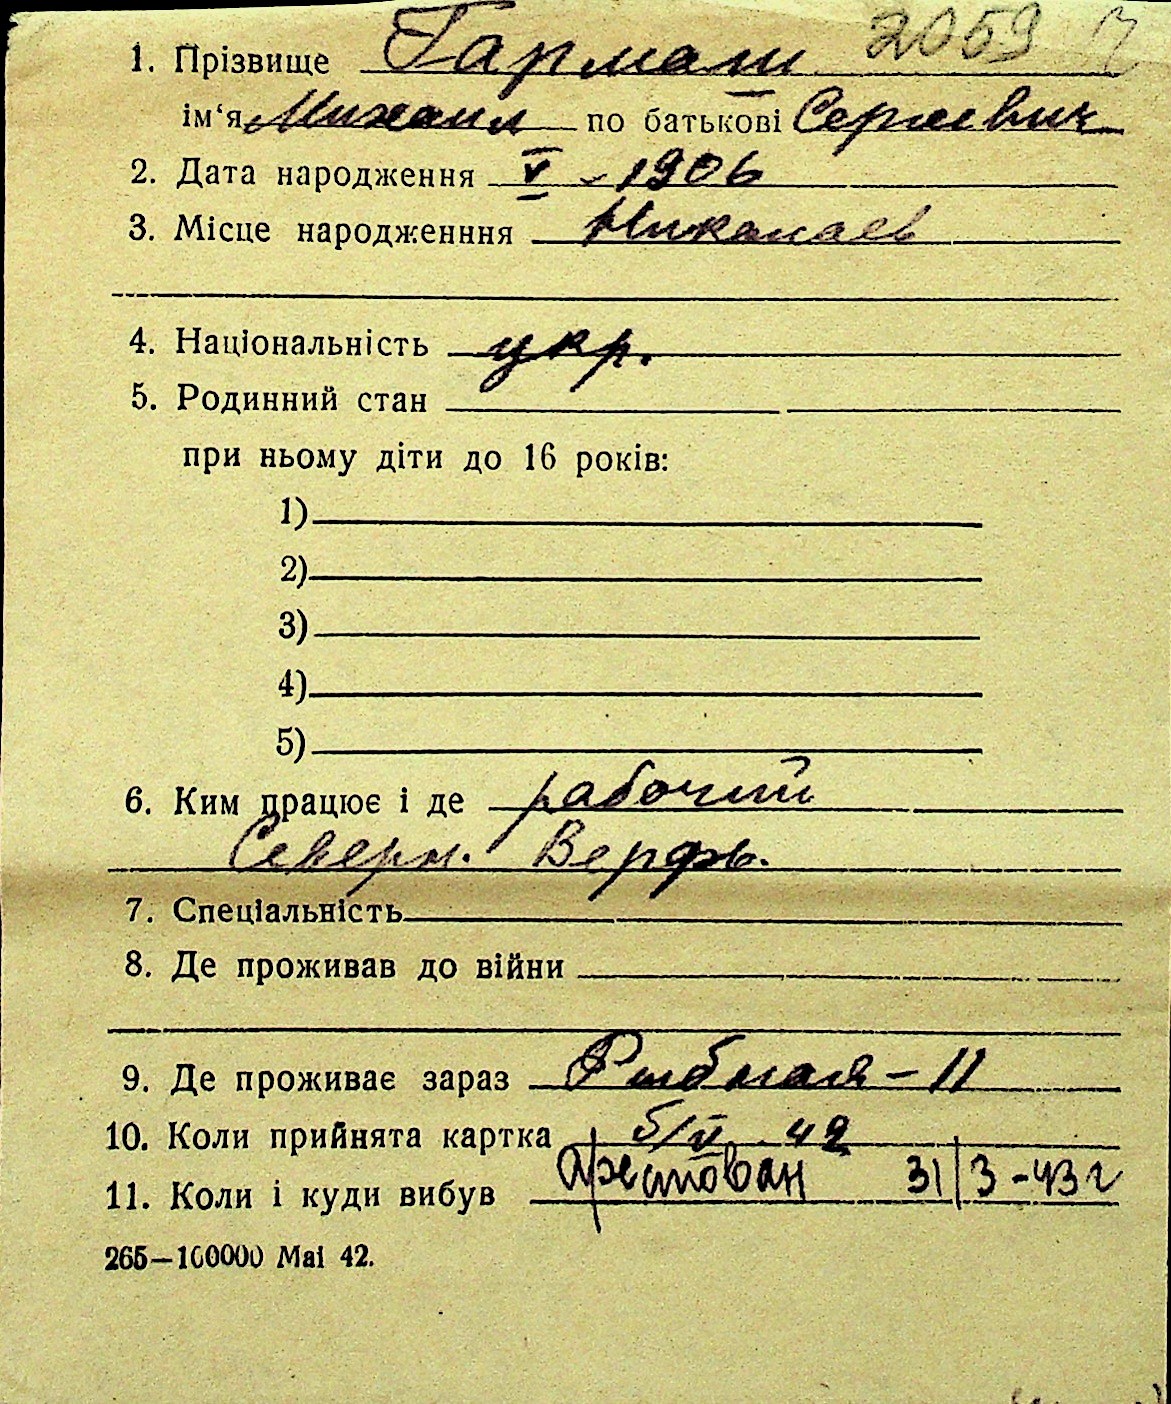 1. Прізвище Гармаш 2059
ім‘я Михаил по батькові Сергиевич
2. Дата народження V - 1906
3. Місце народженння Николаев
4. Національність укр.
5. Родинний стан
при ньому діти до 16 років:
1)
2)
3)
4)
5)
6. Ким працює і де рабочий
Северн. Верфь.
7. Спеціальність
8. Де проживав до війни
9. Де проживає зараз Рыбная - 11
10. Коли прийнята картка 42
11. Коли і куди вибув Арестован 31/3-43 г
265—100000 Маі 42.